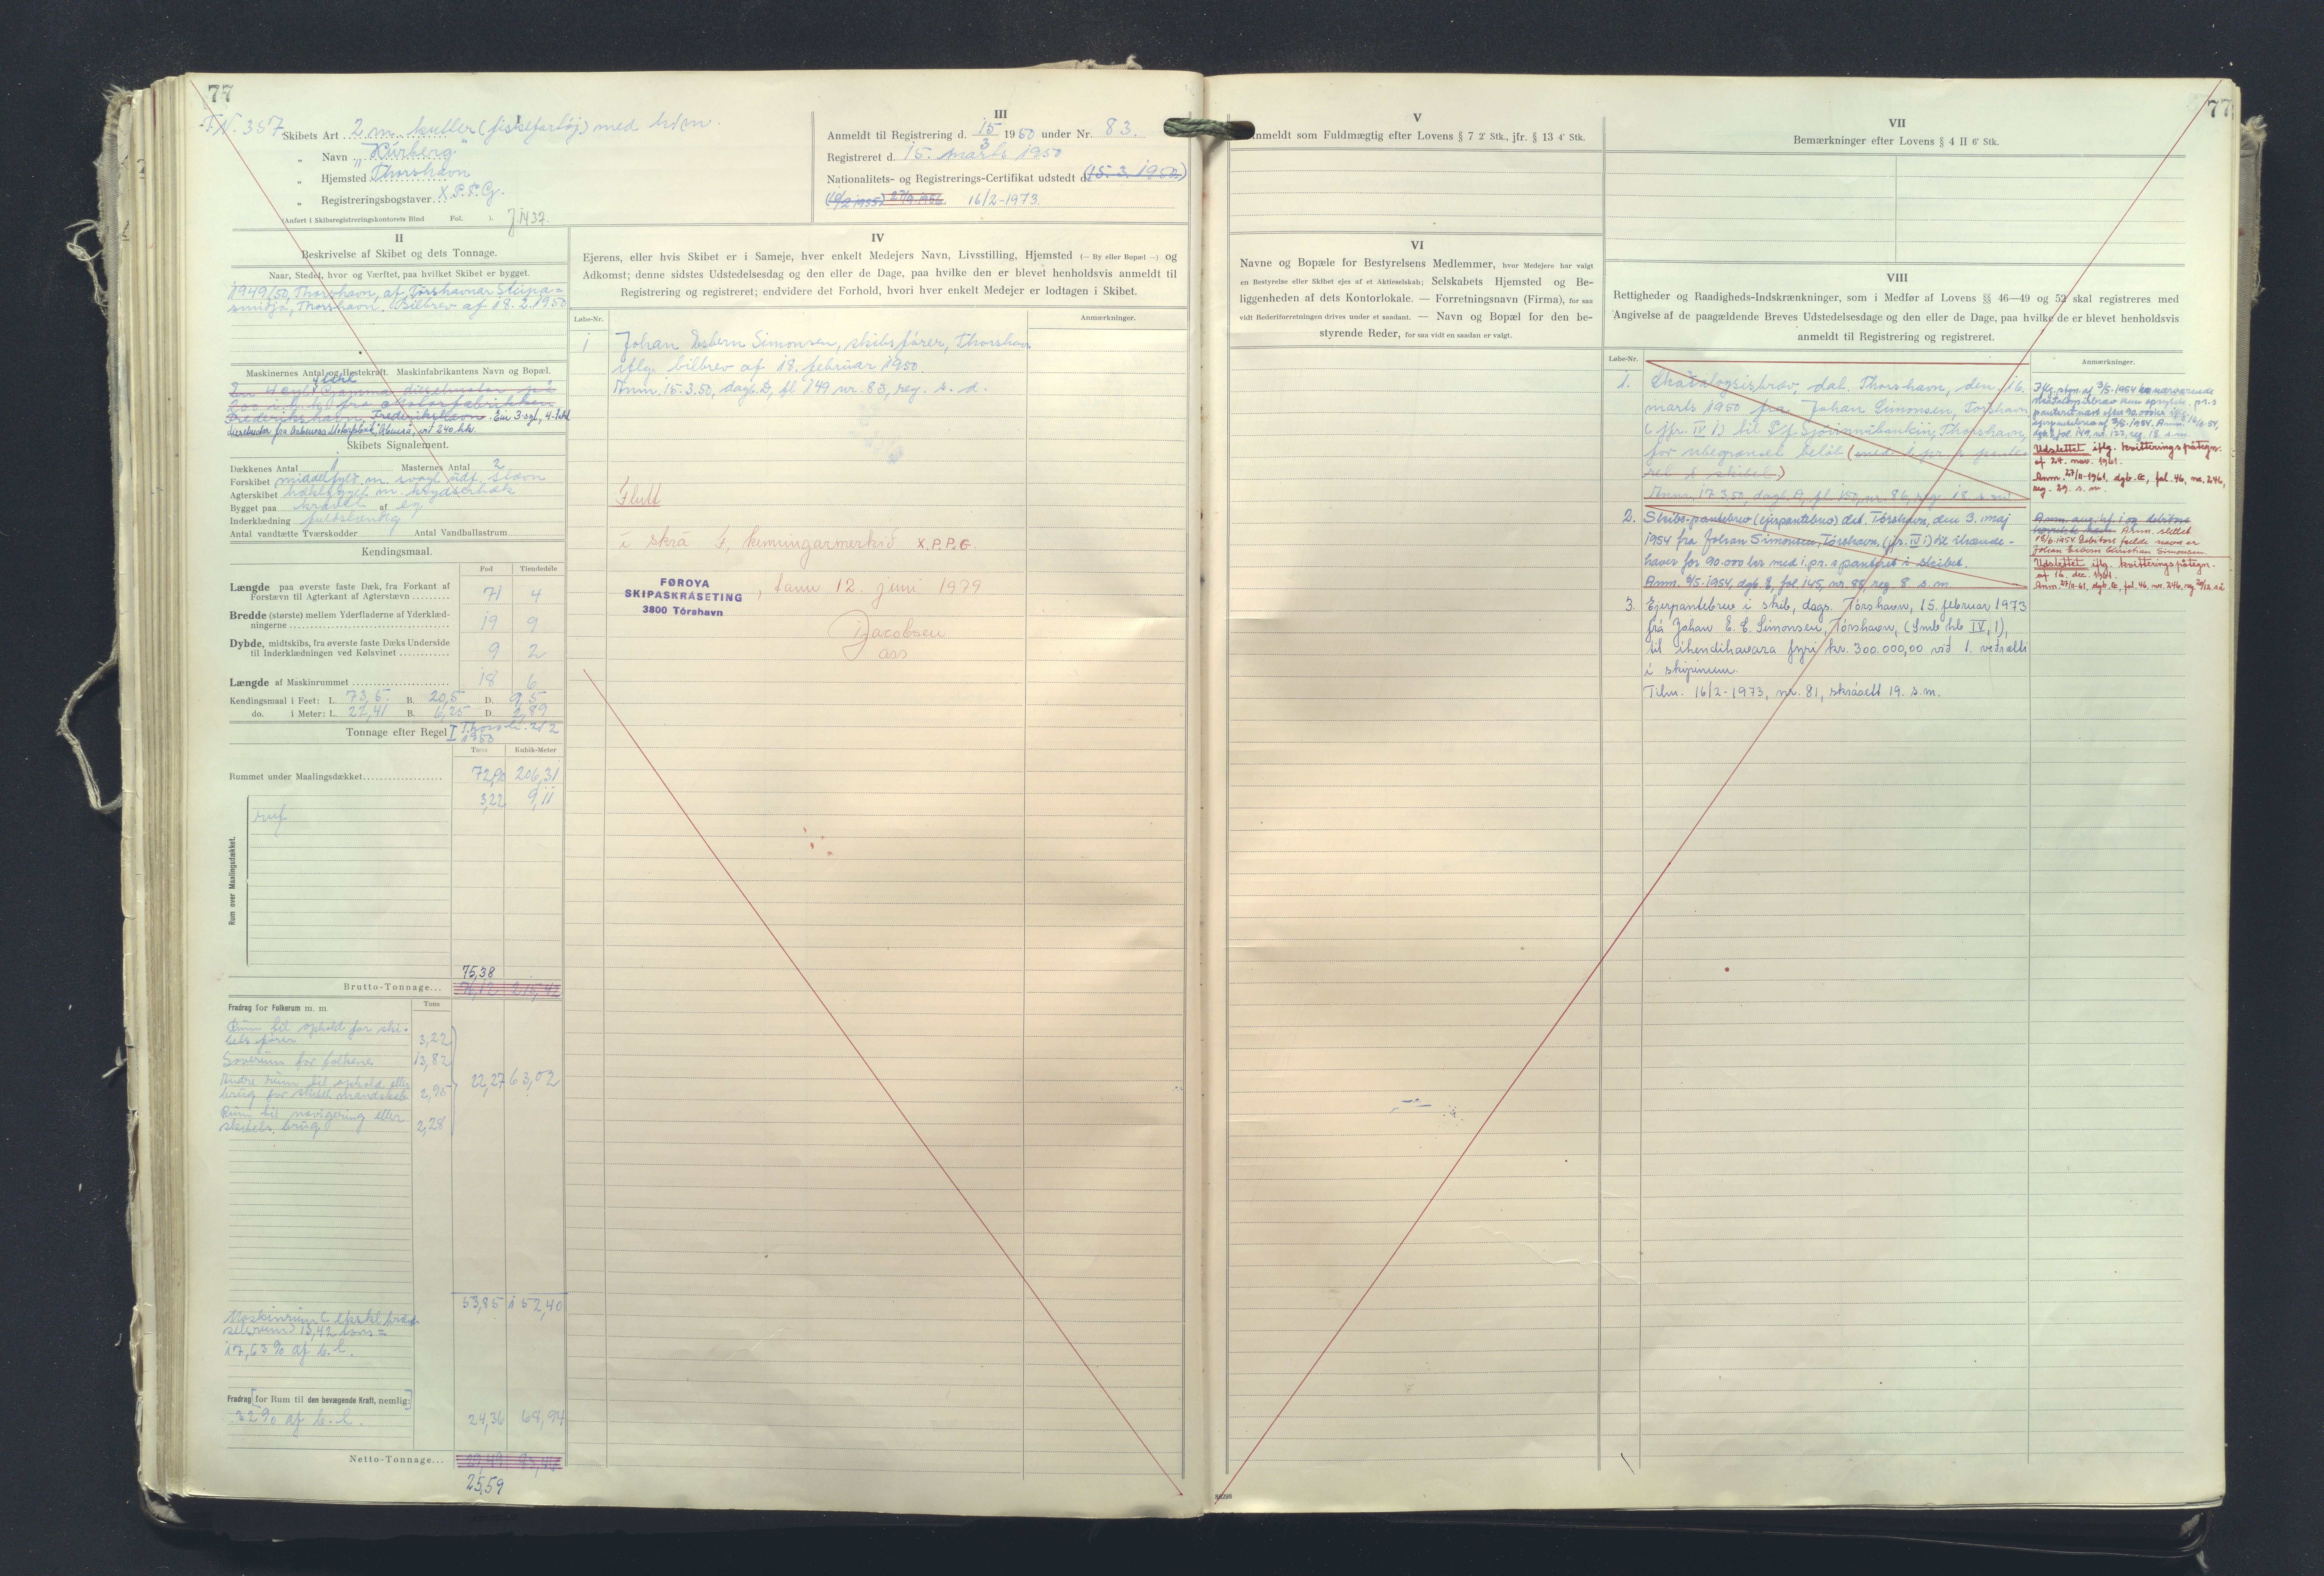 77
T.N. 357
I
Skibets Art 2 m. kutter (fiskefartøj) med hjm.
„ Navn „Kúrberg"
„ Hjemsted Thorshavn
„ Registreringsbogstaver X.P.P.G.
(Anført i Skibsregistreringskontorets Bind Fol. ).
III
Anmeldt til Registrering d. 15/3 1950 under Nr. 83.
Registreret d. 15. marts 1950
Nationalitets- og Registrerings-Certifikat udstedt d. (15. 3. 1950)
16/2-1973.
II
Beskrivelse af Skibet og dets Tonnage.
Naar, Stedet, hvor og Værftet, paa hvilket Skibet er bygget.
1949/50, Thorshavn, af Tórshavnar Skipa=
smidja, Thorshavn. Bilbrev af 18. 2. 1950
Maskinernes Antal og Hestekraft. Maskinfabrikantens Navn og Bopæl.
4 takt
En 4 cyl. Grenaa dieselmotor på
Frederikshavn. Frederikshavn. Ein 3-syl., 4-takt
dieselmotor fra Aabenraa Motorfabrik, Åbenrå, við 240 hk.
Skibets Signalement.
Dækkenes Antal 1 Masternes Antal 2
Forskibet middelfyldt m. svagt udf. stævn
Agterskibet hækbygget m. krydserhæk
Bygget paa kravel af eg
Inderklædning fuldstændig
Antal vandtætte Tværskodder Antal Vandballastrum
Kendingsmaal.
Fod Tiendedele
Længde paa øverste faste Dæk, fra Forkant af
Forstævn til Agterkant af Agterstævn 71 4
Bredde (største) mellem Yderfladerne af Yderklæd-
ningerne 19 9
Dybde, midtskibs, fra øverste faste Dæks Underside
til Inderklædningen ved Kølsvinet 9 2
Længde af Maskinrummet 18 6
Kendingsmaal i Feet: L. 73,5. B. 20,5 D. 9,5
do. i Meter: L. 22,41 B. 6,25 D. 2,89
Tonnage efter Regel I Thorsh. 21/2
1950
Tons Kubik-Meter
Rummet under Maalingsdækket 72,90 206,31
3,22 9,11
Rum over Maalingsdækket.
ruf
75,38
Brutto-Tonnage... 76,12 215,42
Fradrag for Folkerum m. m. Tons
Rum til ophold for ski-
bets fører 3,22
Soverum for folkene 13,82
Andre rum til ophold eller
brug for skibets mandskab 2,95
22,27 63,02
Rum til navigering eller
skibets brug 2,28
53,85 152,40
17,63 % af b.t.
Fradrag [for Rum til den bevægende Kraft, nemlig:]
32% af b.t. 24,36 68,94
Netto-Tonnage...
25,59
IV
Ejerens, eller hvis Skibet er i Sameje, hver enkelt Medejers Navn, Livsstilling, Hjemsted (— By eller Bopæl —) og
Adkomst; denne sidstes Udstedelsesdag og den eller de Dage, paa hvilke den er blevet henholdsvis anmeldt til
Registrering og registreret; endvidere det Forhold, hvori hver enkelt Medejer er lodtagen i Skibet.
Løbe-Nr. Anmærkninger.
1 Johan Esbern Simonsen, skibsfører, Thorshavn
iflg. bilbrev af 18. februar 1950.
Anm. 15.3.50, dagb. D, fl 149 nr. 83, reg. s. d.
Flutt
í skrá F, kenningarmerkið X.P.P.G.
FØROYA
SKIPASKRÁSETING
3800 Tórshavn
, tann 12. juni 1979
Jacobsen
ass
V
Anmeldt som Fuldmægtig efter Lovens § 7 2' Stk., jfr. § 13 4' Stk.
VI
Navne og Bopæle for Bestyrelsens Medlemmer, hvor Medejere har valgt
en Bestyrelse eller Skibet ejes af et Aktieselskab; Selskabets Hjemsted og Be-
liggenheden af dets Kontorlokale. — Forretningsnavn (Firma), for saa
vidt Rederiforretningen drives under et saadant. — Navn og Bopæl for den be-
styrende Reder, for saa vidt en saadan er valgt.
77
VII
Bemærkninger efter Lovens § 4 II 6' Stk.
VIII
Rettigheder og Raadigheds-Indskrænkninger, som i Medfør af Lovens §§ 46—49 og 52 skal registreres med
Angivelse af de paagældende Breves Udstedelsesdage og den eller de Dage, paa hvilke de er blevet henholdsvis
anmeldt til Registrering og registreret.
Løbe-Nr. Anmærkninger.
1. Skadesløsbrev, dat. Thorshavn, den 16.
marts 1950 fra Johan Simonsen, Torshavn
(jfr. IV 1) til P/f. Sjóvinnubankin, Thorshavn,
for ubegrænset beløb
Anm. 17.3.50, dagb. A, fl. 150, nr. 86, reg. 18. s. m.
Udslettet iflg. kvitteringspåtegn.
af 24. nov. 1961.
Anm. 27/11-1961, dgb. G, fol. 46, nr. 246,
reg. 29. s. m.
2. Skibs-pantebrev (ejerpantebrev) dat. Tórshavn, den 3. maj
1954 fra Johan Simonsen, Tórshavn, (jfr. IV 1) til ihænde-
haver for 90.000 kr med 1. pr. s panteret i skibet.
Anm. 6/5-1954, dgb. E, fol. 145, nr. 88, reg. 8. s. m.
Anm. slettet
Debitors fulde navn er
Johan Esbern Christian Simonsen.
Udslettet iflg. kvitteringspåtegn.
af 16. dec. 1961.
3. Ejerpantebrev í skib, dags. Tórshavn, 15. februar 1973
frá Johan E. C. Simonsen, Tórshavn, (Smb. hb. IV, 1),
til ihendihavara fyri kr. 300.000,00 við 1. veðrætti
í skipinum.
Tilm. 16/2-1973, nr. 81, skrásett 19. s.m.